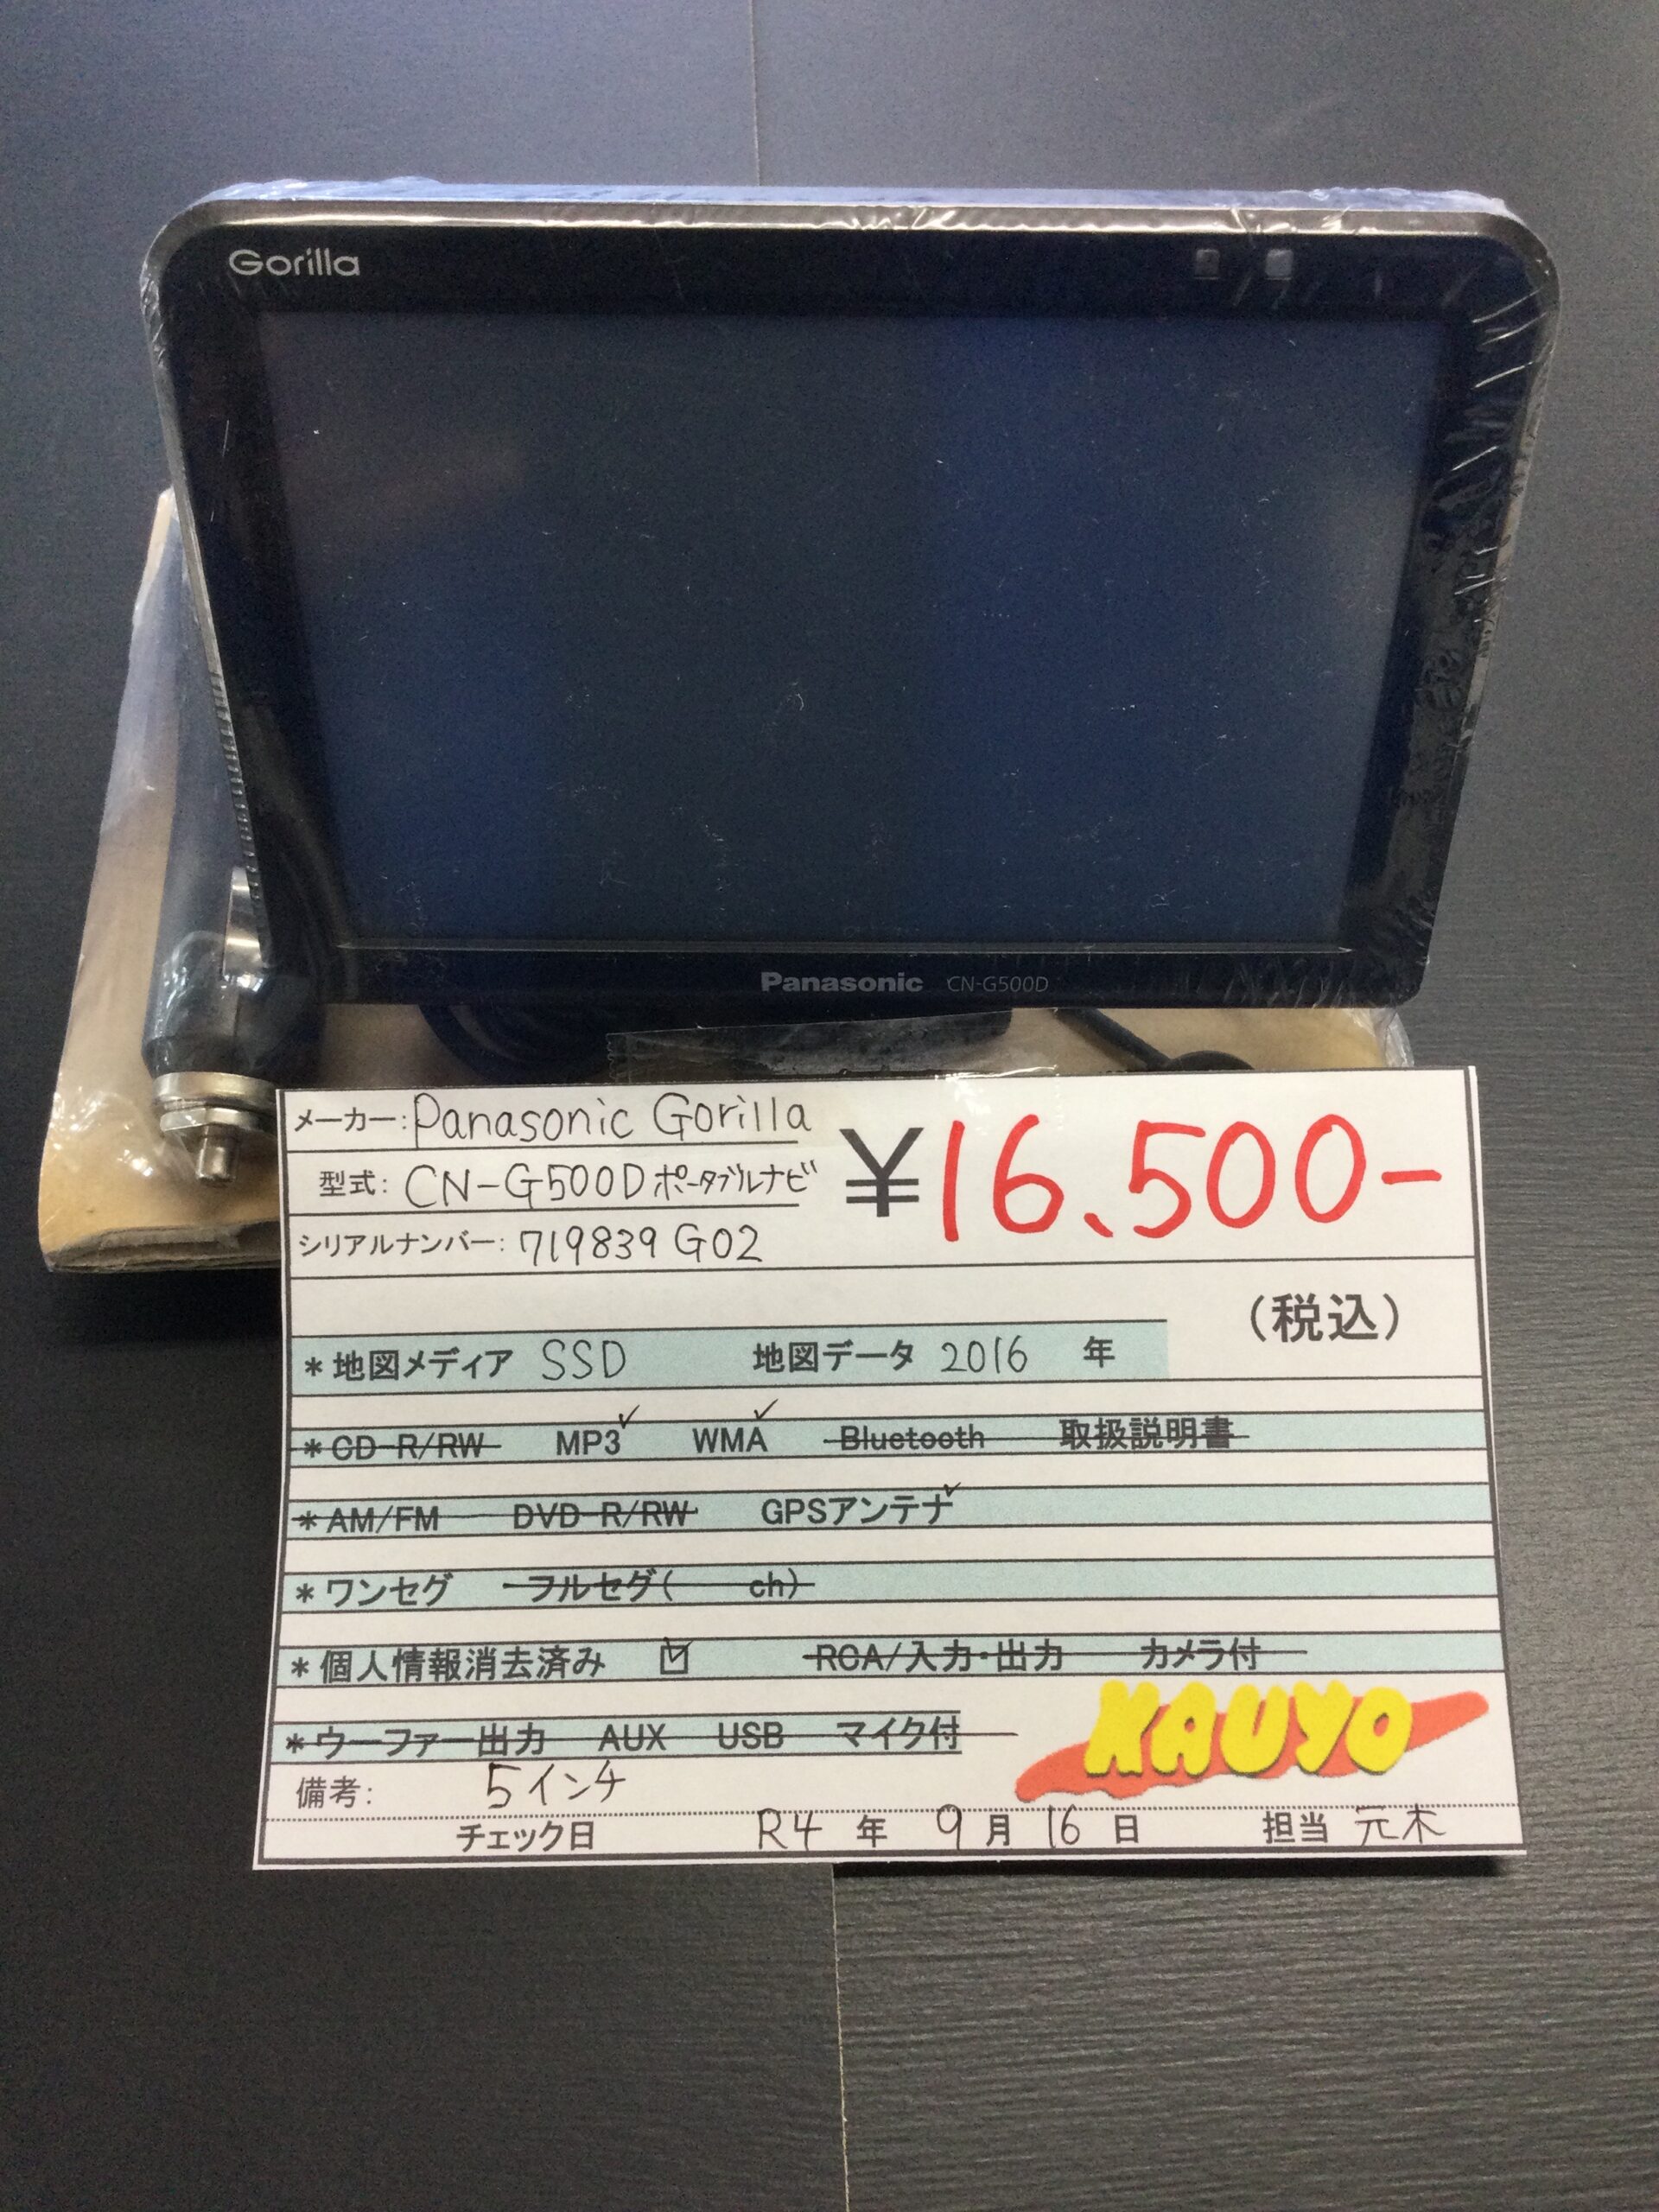 Gorilla
Panasonic CN-G500D
メーカー: Panasonic Gorilla
¥16.500-
型式: CN-G500D ポータブルナビ
シリアルナンバー: 719839G02
(税込)
*地図メディア SSD 地図データ 2016 年
*CD-R/RW MP3 ✓ WMA ✓ Bluetooth 取扱説明書
*AM/FM DVD-R/RW GPSアンテナ ✓
*ワンセグ フルセグ( ch)
*個人情報消去済み ☑ RCA/入力・出力 カメラ付
*ウーファー出力 AUX USB マイク付
KAUYO
備考: 5インチ
チェック日 R4 年 9 月 16 日 担当 元木